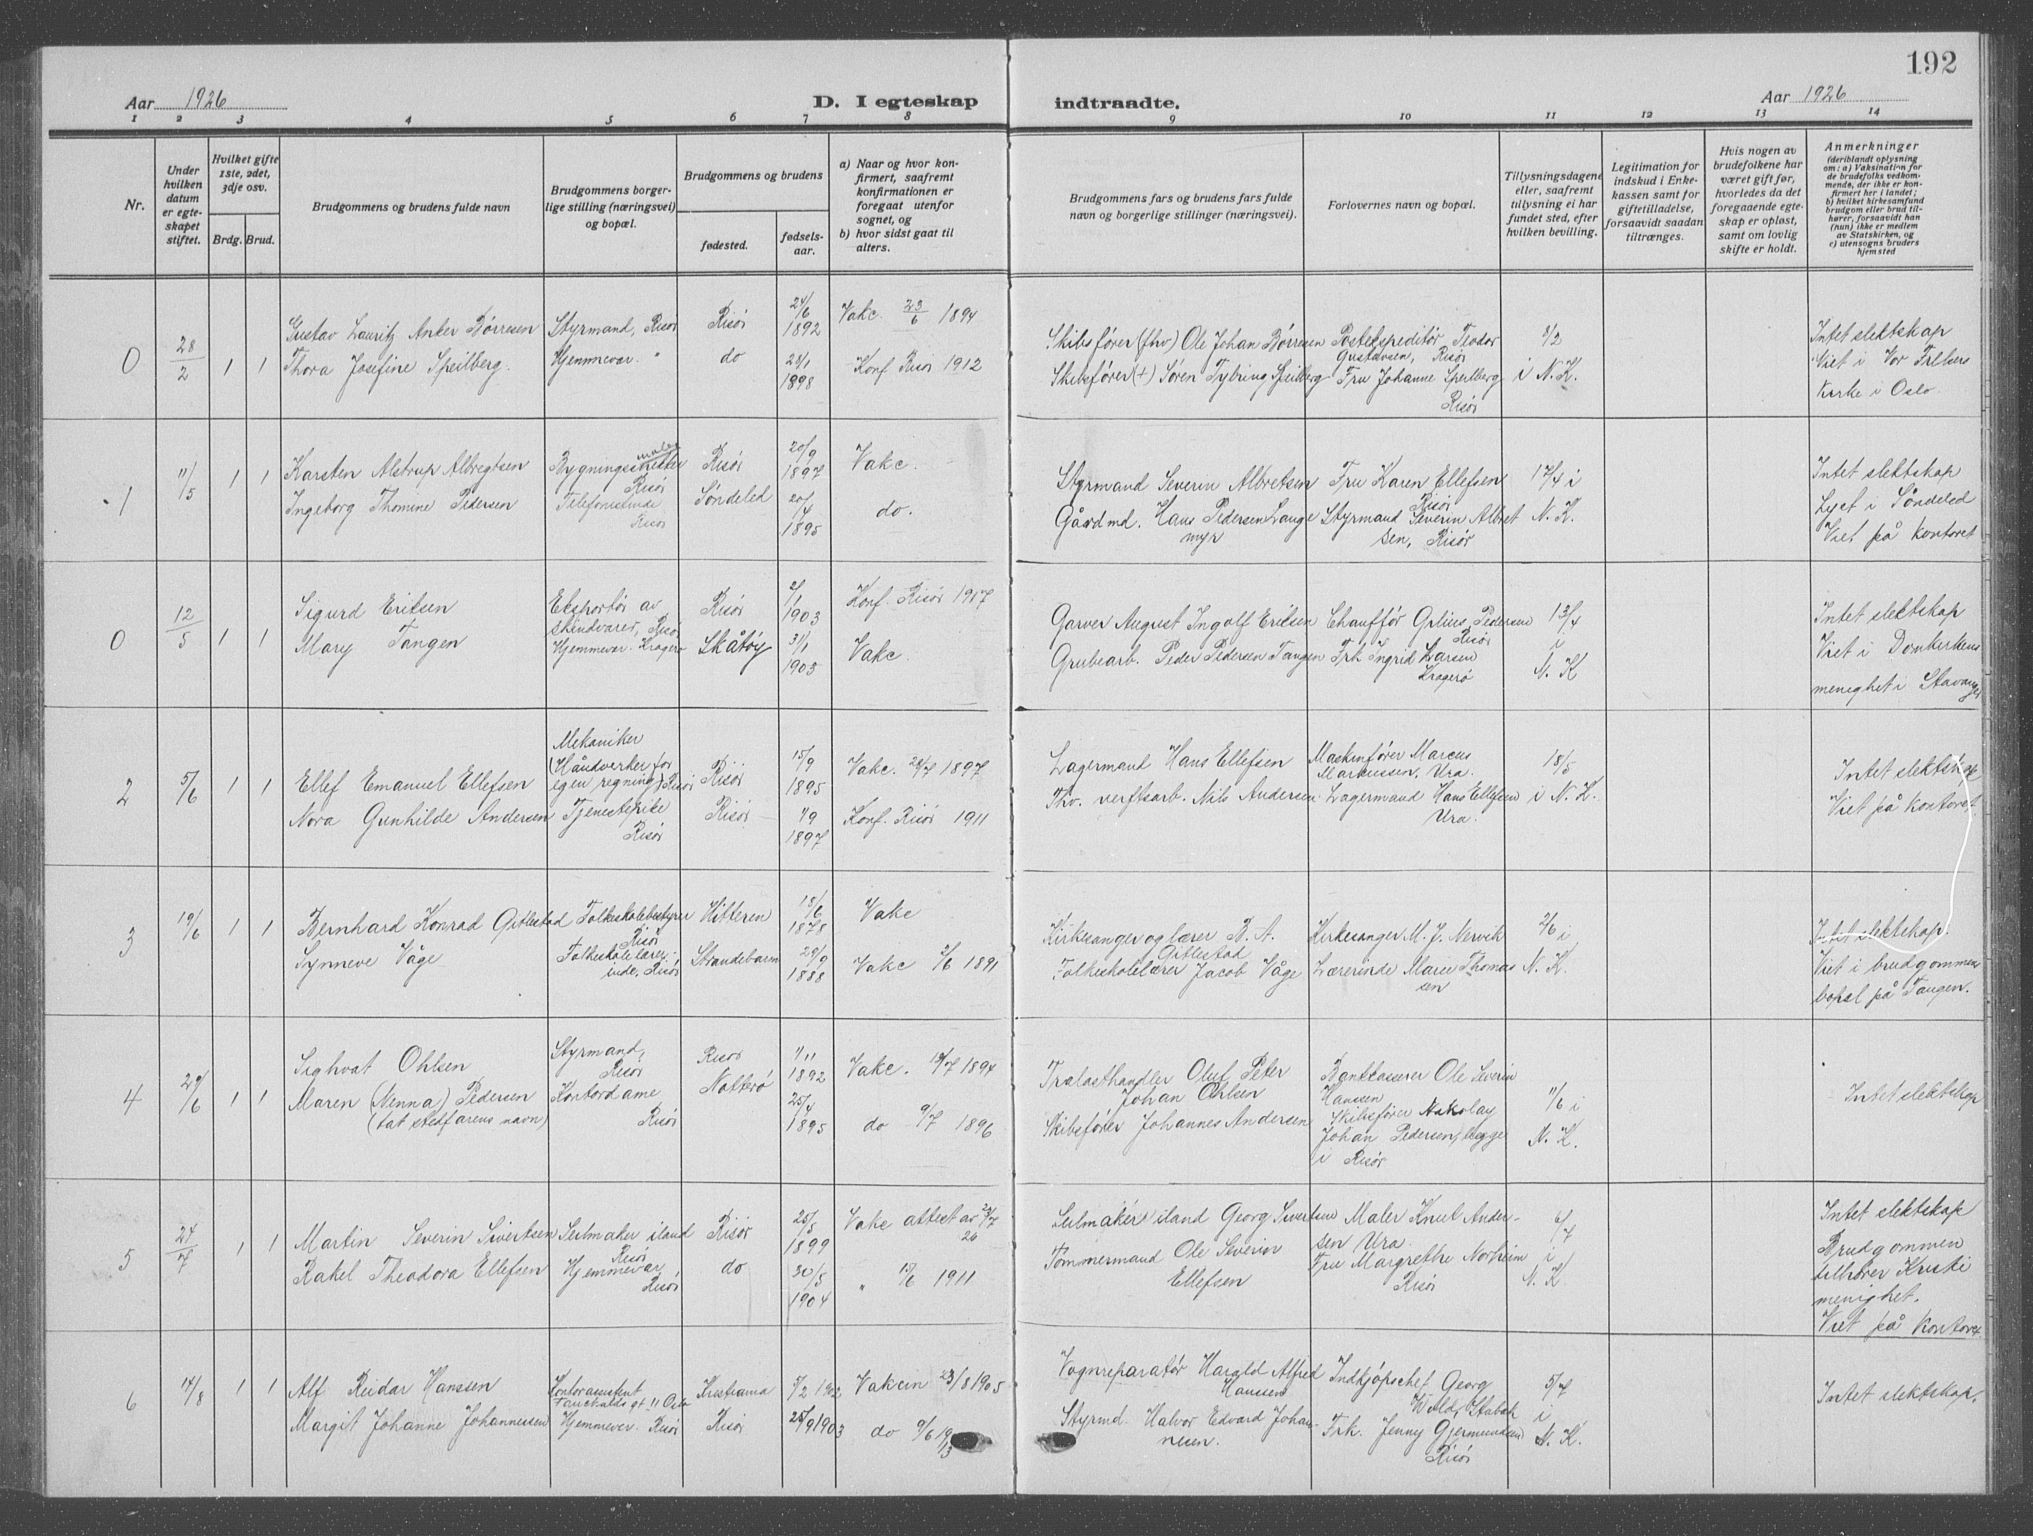 192
Aar 1926
D. I egteskap
indtraadte.
Aar 1926
1 2 3 4 5 6 7 8 9 10 11 12 13 14
Nr.
Under hvilken datum er egteskapet stiftet.
Hvilket gifte 1ste, 2det, 3dje osv.
Brdg. Brud.
Brudgommens og brudens fulde navn
Brudgommens borgerlige stilling (næringsvei) og bopæl.
Brudgommens og brudens
fødested.
fødselsaar.
a) Naar og hvor konfirmert, saafremt konfirmationen er foregaat utenfor sognet, og
b) hvor sidst gaat til alters.
Brudgommens fars og brudens fars fulde navn og borgerlige stillinger (næringsvei).
Forlovernes navn og bopæl.
Tillysningsdagene eller, saafremt tillysning ei har fundet sted, efter hvilken bevilling.
Legitimation for indskud i Enkekassen samt for giftetilladelse, forsaavidt saadan tiltrænges.
Hvis nogen av brudefolkene har været gift før, hvorledes da det foregaaende egteskap er opløst, samt om lovlig skifte er holdt.
Anmerkninger
(deriblandt oplysning om: a) Vaksination for de brudefolks vedkommende, der ikke er konfirmert her i landet; b) hvilket kirkesamfund brudgom eller brud tilhører, forsaavidt han (hun) ikke er medlem av Statskirken, og c) utensogns bruders hjemsted
0 28/2 1 1
Gustav Lauritz Anker Børresen
Thora Josefine Speilberg.
Styrmand, Risør
Hjemmevær. "
Risør
do
24/6 1892
23/1 1898
Vakc. 23/6 1894
Konf. Risør 1912
Skibsfører (fhv) Ole Johan Børresen
Skibsfører (+) Søren Tybring Speilberg
Postekspeditør Teodor Gustavsen, Risør
Fru Johanne Speilberg Risør
3/2
i N. K.
Intet slektskap
Viet i Vor Frelsers
Kirke i Oslo.
1 11/5 1 1
Karsten Alstrup Albregtsen
Ingeborg Thomine Pedersen
Bygnings maler
Risør
Telefonistinde
Risør
Risør
Søndeled
20/9 1897
20/4 1895
Vakc.
do.
Styrmand Severin Albretsen
Gårdmd. Hans Pedersen Langemyr
Fru Karen Ellefsen Risør
Styrmand Severin Albretsen, Risør
17/4 i
N. K.
Intet slektskap
Lyst i Søndeled
Viet på kontoret
0 12/5 1 1
Sigurd Eriksen
Mary Tangen
Eksportør av skindvarer, Risør
Hjemmevær. Kragerø
Risør
Skåtøy
2/1 1903
31/1 1903
Konf. Risør 1917
Vakc.
Garver August Ingolf Eriksen
Grubearb. Peder Pedersen Tangen
Chauffør Pedersen Risør
Frk Ingrid Larsen Kragerø
13/4
i
N. K
Intet slektskap
Viet i Domkirkens
menighet i Stavanger
2 5/6 1 1
Ellef Emanuel Ellefsen
Nora Gunhilde Andersen
Mekaniker
(Håndverker for egen regning) Risør
Tjenestepike
Risør
Risør
Risør
15/9 1895
4/9 1897
Vakc. 28/7 1897
Konf. Risør 1911
Lagermand Hans Ellefsen
Fhv. verftsarb. Nils Andersen
Maskinfører Marcus Markussen, Ura.
Lagermand Hans Ellefsen Ura.
18/5
i N. K.
Intet slektskap
Viet på kontoret.
3 19/6 1 1
Bernhard Konrad Gitlestad
Synneve Våge
Folkeskolebestyrer
Risør
Folkeskolelærerinde, Risør
Hitteren
Strandebarm
18/6 1878
29/9 1888
Vakc
Vakc 3/6 1891
Kirkesanger og lærer B. A. Gitlestad
Folkeskolelærer Jacob Våge
Kirkesanger M. J. Nervik
Lærerinde Marie Thomassen
2/6 i
N. K.
Intet slektskap.
Viet i brudgommens
bopel på Tangen.
4 29/6 1 1
Sighvat Ohlsen
Maren (Nenna) Pedersen
(tat stedfarens navn)
Styrmand,
Risør
Kontordame
Risør
Risør
Nøtterø
1/11 1892
25/4 1895
Vakc. 19/7 1894
do 9/7 1896
Trælasthandler Oluf Peter Johan Ohlsen
Skibsfører Johannes Andersen
Bankkasserer Ole Severin Hanssen
Skibsfører Nikolay Johan Pedersen, begge i Risør
11/6 i
N. K.
Intet slektskap
5 24/7 1 1
Martin Severin Sivertsen
Rakel Theodora Ellefsen
Seilmaker iland
Risør
Hjemmevær
Risør
Risør
do
25/5 1899
20/5 1904
Vakc attest av 23/7 26
" 19/6 1911
Seilmaker iland Georg Sivertsen
Tømmermand Ole Severin Ellefsen
Maler Knut Andersen Ura.
Fru Margrethe Norheim Risør
6/7
i
N. K.
Intet slektskap
Brudgommen
tilhører Kristi
menighet.
Viet på kontoret
6 14/8 1 1
Alf Reidar Hanssen
Margit Johanne Johannessen
Kontorassistent
Fauchaldsgt. 11 Oslo
Hjemmevær. Risør
Kristiania
Risør
9/2 1902
25/9 1903
Vakcin 23/8 1905
do 9/6 1913
Vognreparatør Harald Alfred Hanssen
Styrmd. Halvor Edvard Johannesen.
Indkjøpschef Georg Wold, Stabæk
Frk. Jenny Gjermundsen Risør
5/7
i
N. K.
Intet slektskap.